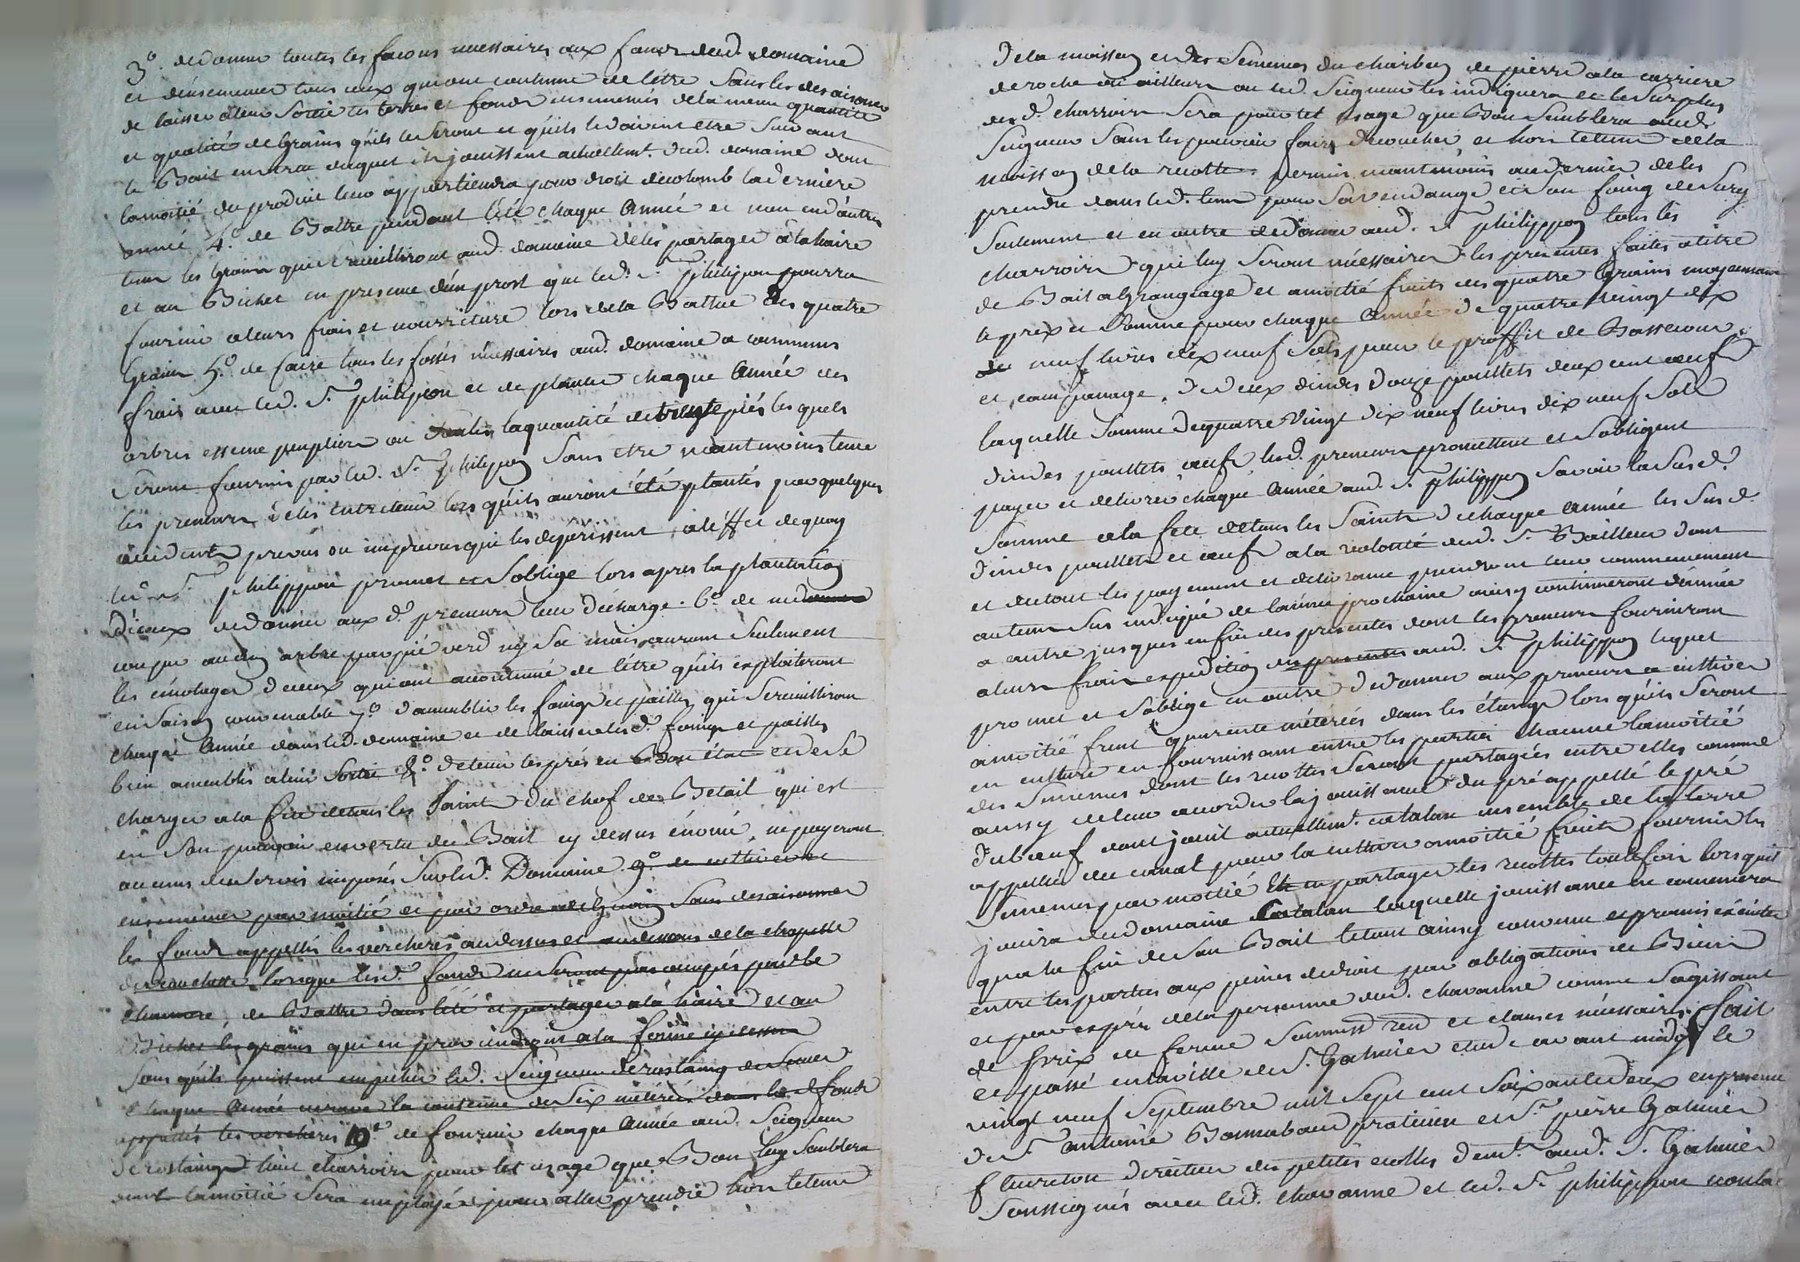 3°. de donner toutes les façons necessaires aux fonds dud. domaine
et d'ensemencer tous ceux qui ont coutume de l'etre sans les desaisonner
de laisser a leur sortie les terres et fonds ensemencés de la meme quantité
et qualité de grains qu'ils le seront et qu'ils le doivent etre suivant
le Bail en vertu duquel ils jouissent actuellemt. dud. domaine dont
la moitié du produit leur appartiendra pour droit de colomb la derniere
année 4°. de Battre pendant l'été chaque année et non en d'autre
tems les grains qu'ils cueilliront aud. domaine de les partager a la haire
et au Bichet en presence d'un prost que led. Sr. philippon pourra
fournir a leurs frais et nourriture lors de la Battue des quatre
grains 5°. de faire tous les fossés necessaires aud. domaine a communs
frais avec led. Sr. philippon et de planter chaque année des
arbres essence peupliers ou saules la quantité de vingt piés lesquels
seront fournis par led. Sr. philippon sans etre neantmoins tenu
les preneurs de les entretenir lors qu'ils auront été plantés par quelques
accidents prevus ou imprevus qui les deperissent a l'effet de quoy
led. Sr. philippon promet et s'oblige lors apres la plantation
d'iceux de donner aux d. preneurs leur décharge. 6°. de ne
couper aucun arbre par pié verd ny sec mais auront seulement
les émotages de ceux qui ont accoutumé de l'etre qu'ils exploiteront
en saison convenable 7°. d'ameublir les foings et pailles qui se recuilliront
chaque année dans led. domaine et de laisser lesd. foings et pailles
bien ameublis a leur sortie 8°. de tenir les prés en bon état et de se
charger a la fete de tous les saints du chef de Betail qui est
en son pouvoir en vertu du Bail cy dessus énoncé, ne payeront
aucuns des servis imposés sur led. Domaine. 9°. de cultiver et
ensemencer par moitié et par ordre de grains sans desaisonner
les fonds appellés les vercheres au dessus et au dessous de la chapelle
lorsque lesd. fonds ne seront pas occupés par le
chanvre, de Battre dans l'été et partager a la haire et au
Bichet les grains qui en proviendront a la forme cy dessus
sans qu'ils puissent empecher led. Seigneur de rostaing de semer
chaque année en rave la contenue de six métérées dans les d. fonds
appellés les vercheres 10°. de fournir chaque année aud. Seigneur
de rostaing huit charrois pour tel usage que Bon luy semblera
dont la moitié sera employée pour aller prendre hors le tems
de la moisson et des semences du charbon de pierre a la carriere
de roche ou ailleurs ou led. Seigneur les indiquera et le surplus
desd. charrois sera pour tel usage que Bon semblera aud.
Seigneur sans les pouvoir faire decoucher, et hors le tems de la
moisson de la recolte, permis neantmoins au dernier de les
prendre dans led. tems pour sa vendange et son foing de Sury
seulement et en outre de donner aud. Sr. philippon tous les
charrois qui luy seront nécessaires les presentes faites a titre
de Bail a grangeage et a moitié fruits des quatre grains moyennant
le prix et somme pour chaque année de quatre vingt dix
neuf livres dix neuf sols pour le proffit de Bassecour
et campanage, de deux dindes douze poullets deux cent oeufs
laquelle somme de quatre vingt dix neuf livres dix neuf sols
dindes poullets oeufs lesd. preneurs promettent et s'obligent
payer et delivrer chaque année aud. Sr. philippon savoir la susd.
somme a la fete de tous les saints de chaque année les sus d.
dindes poullets et oeufs a la volonté dud. Sr. Bailleur dont
et du tout les payement et delivrance prendront leur commencement
au tems sus indiqué de l'année prochaine ainsy continueront d'année
a autre jusques en fin des presentes dont les preneurs fourniront
a leurs frais expedition aud. Sr. philippon lequel
promet et s'oblige en outre de donner aux preneurs a cultiver
a moitié fruit quarente métérées dans les étangs lors qu'ils seront
en culture en fournissant entre les parties chacune la moitié
des semences dont les recoltes seront partagées entre elles comme
aussy de leur accorder la jouissance du pré appellé le pré
du boeuf dont jouit actuellemt. catalan ensemble de la terre
appellée du canal pour la cultiver a moitié fruits fournir les
semences par moitié et en partager les recoltes toutefois lorsqu'il
jouira du domaine Catalan laquelle jouissance ne commencera
qu'a la fin de son Bail le tout ainsy convenu et promis executer
entre les parties aux peines de droit par obligations de Biens
et par exprés de la personne dud. chavanne comme s'agissant
de prix de ferme soumissd. rend. et clauses nécessaires. fait
et passé en la ville de St. Galmier etude avant midy le
vingt neuf Septembre mil sept cent soixante deux en presence
de Sr. antoine Bonnabaud praticien et Sr. pierre Galmier
fleureton directeur des petites ecolles demt. aud. St. Galmier
soussignés avec led. chavanne et led. Sr. philippon non la